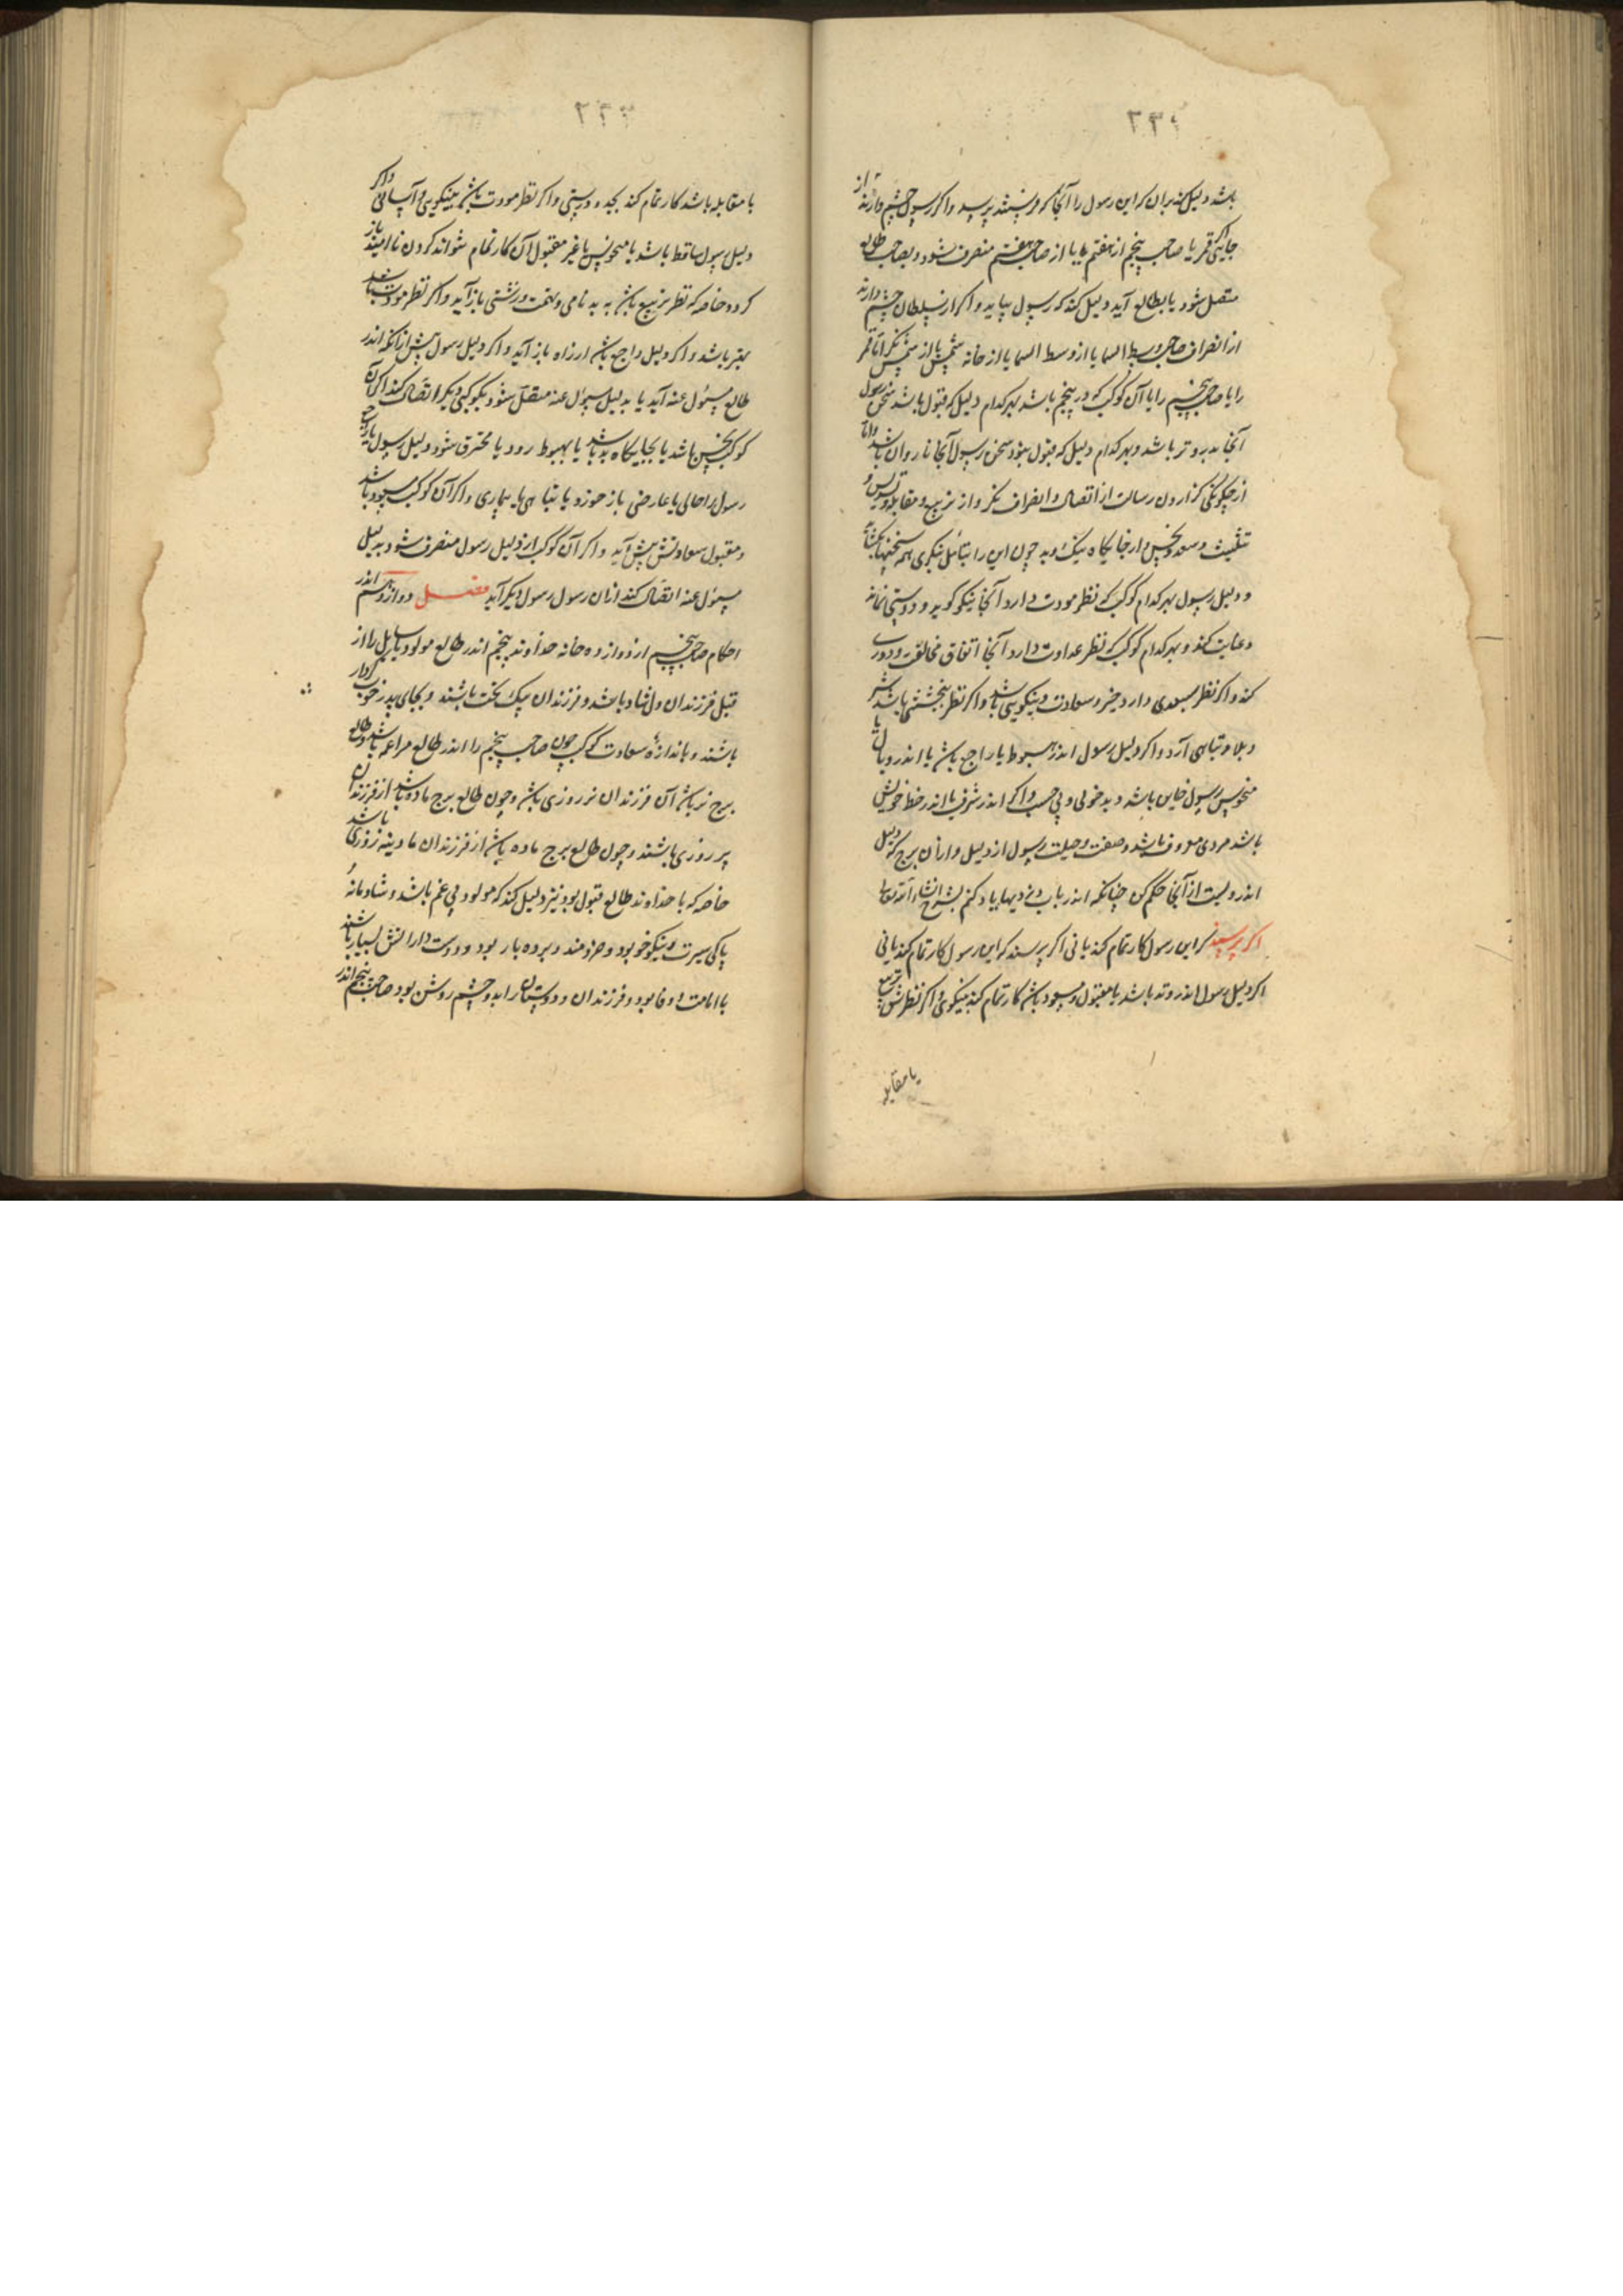 ۲۳۲
باشد دلیل کند بران که این رسول را آنجا که فرستند برسد و اگر رسول چشم دارند از
جایی اگر قمر یا صاحب پنجم از هفتم یا از صاحب هفتم منصرف شود و بصاحب طالع
متصل شود یا بطالع آید دلیل کند که رسول بیاید و اگر از سلطان چشم دارند
از انصراف صاحب وسط السما یا از وسط السما یا از خانه شمس یا از شمس نگر اما قمر
را یا صاحب پنجم را یا آن کوکب که در پنجم باشد بهر کدام دلیل که قبول باشد سخن رسول
آنجا بدو تر باشد و بهر کدام دلیل که قبول نبود سخن رسول آنجا ناروان باشد و اما
از چگونگی گزاردن رسالت از اتصال و انصراف نگر و از تربیع و مقابله و تسدیس و
تثلیث و سعد و نحس و از جایگاه نیک و بد چون این را بتامل بنگری همه سختیها بگشاید
و دلیل رسول بهر کدام کوکب که نظر مودت دارد آنجا نیکو گوید و دوستی نماید
و عنایت کند و بهر کدام کوکب که نظر عداوت دارد آنجا اتفاق مخالفت و دوری
کند و اگر نظر بسعدی دارد خیر و سعادت و نیکویی باشد و اگر نظر بنحسی باشد شر
و بلا و تباهی آرد و اگر دلیل رسول اندر هبوط یا راجع باشد یا اندر وبال یا
منحوس رسول خاین باشد و بدخوی و بی حسب و اگر اندر شرف یا اندر خط خویش
باشد مردی معروف باشد و صفت و حیلت رسول از دلیل و از آن برج که دلیل
اندروست از آنجا حکم کن چنانکه اندر باب دزدیها یاد کنم بشرح انشاء الله تعالی
اگر پرسند که این رسول کار تمام کند یا نی اگر پرسند که این رسول کار تمام کند یا نی
اگر دلیل رسول اندر وتد باشد یا مقبول و مسعود باشد کار تمام کند بنیکوی و اگر نظرش تربیع
یا مقابله
۲۳۳
یا مقابله باشد کار تمام کند بجد و دوستی و اگر نظر مودت باشد بنیکویی و آسانی و اگر
دلیل رسول ساقط باشد یا منحوس یا غیر مقبول آن کار تمام نتواند کردن نا امید باز
گردد خاصه که نظر تربیع باشد به بد نامی و تهمت و زشتی باز آید و اگر نظر مودت باشد
بهتر باشد و اگر دلیل راجع باشد از راه باز آید و اگر دلیل رسول پیش از آنکه اندر
طالع مسئول عنه آید یا بدلیل مسئول عنه متصل شود بکوکبی دیگر اتصال کند اگر آن
کوکب نحس باشد یا بجایگاه بد باشد یا بهبوط رود یا محترق شود دلیل رسول یا راجع
رسول را حالی یا عارضی باز خورد یا تباهی یا بیماری و اگر آن کوکب مسعود باشد
و مقبول سعادتش پیش آید و اگر آن کوکب از دلیل رسول منصرف شود بدلیل
مسئول عنه اتصال کند از آن رسول رسول دیگر آید فصل دوازدهم اندر
احکام صاحب پنجم از دوازده خانه خداوند پنجم اندر طالع مولود یا سایل را از
قبل فرزندان دل شاد باشد و فرزندان نیک بخت باشند و بجای پدر خوب کردار
باشند و باندازه سعادت کوکب چون صاحب پنجم را اندر طالع مراعم باشد و طالع
برج نر باشد آن فرزندان نر روزی باشد و چون طالع برج ماده باشد از فرزندان
پر روزی باشند و چون طالع برج ماده باشد از فرزندان مادینه روزی باشد
خاصه که با خداوند طالع قبول بود نیز دلیل کند که مولود بی غم باشد و شادمانه
پاکی سیرت و نیکو خو بود و خردمند و برده بار بود و دوست دارانش بسیار باشند
با امانت و وفا بود و فرزندان و دوستان را بدو چشم روشن بود صاحب پنجم اندر